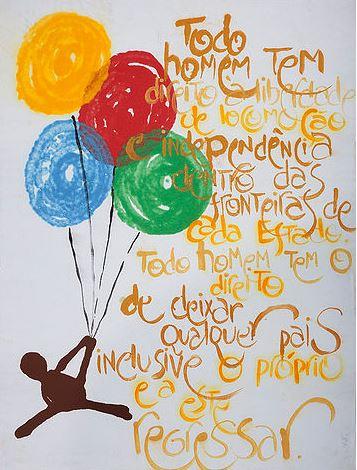 Todo
homem tem
direito à liberdade
de locomoção
e independência
dentro das
fronteiras de
cada Estado.
Todo homem tem o
direito
de deixar
qualquer país
inclusive o próprio
e a este
regressar.